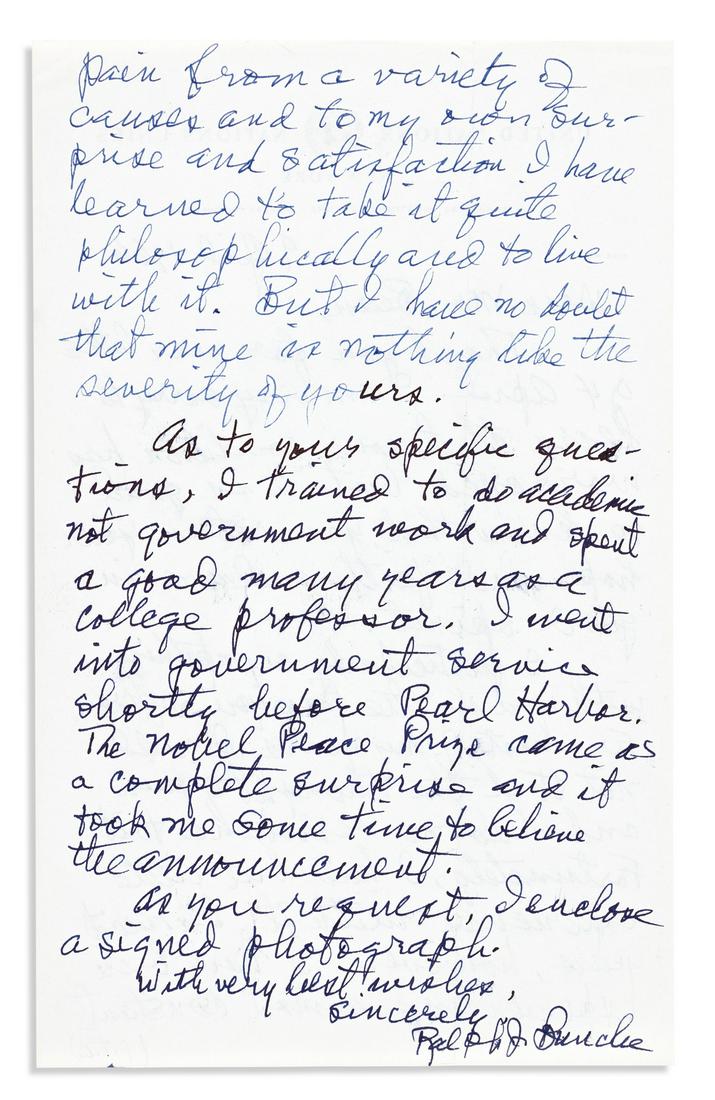 pain from a variety of
causes and to my own sur-
prise and satisfaction I have
learned to take it quite
philosophically and to live
with it. But I have no doubt
that mine is nothing like the
severity of yours.
As to your specific ques-
tions, I trained to do academic
not government work and spent
a good many years as a
college professor. I went
into government service
shortly before Pearl Harbor.
The Nobel Peace Prize came as
a complete surprise and it
took me some time to believe
the announcement.
As you request, I enclose
a signed photograph.
With very best wishes,
Sincerely
Ralph J. Bunche